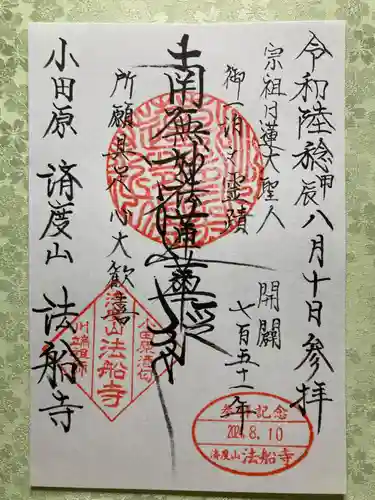 令和陸稔甲辰八月十日参拝
宗祖日蓮大聖人
御一泊之霊蹟
開闢
七百五十一年
南無妙法蓮華経
所願具足心大歓喜
小田原 済度山 法船寺
済度山
法船寺
参拝記念
2024.8.10
済度山 法船寺